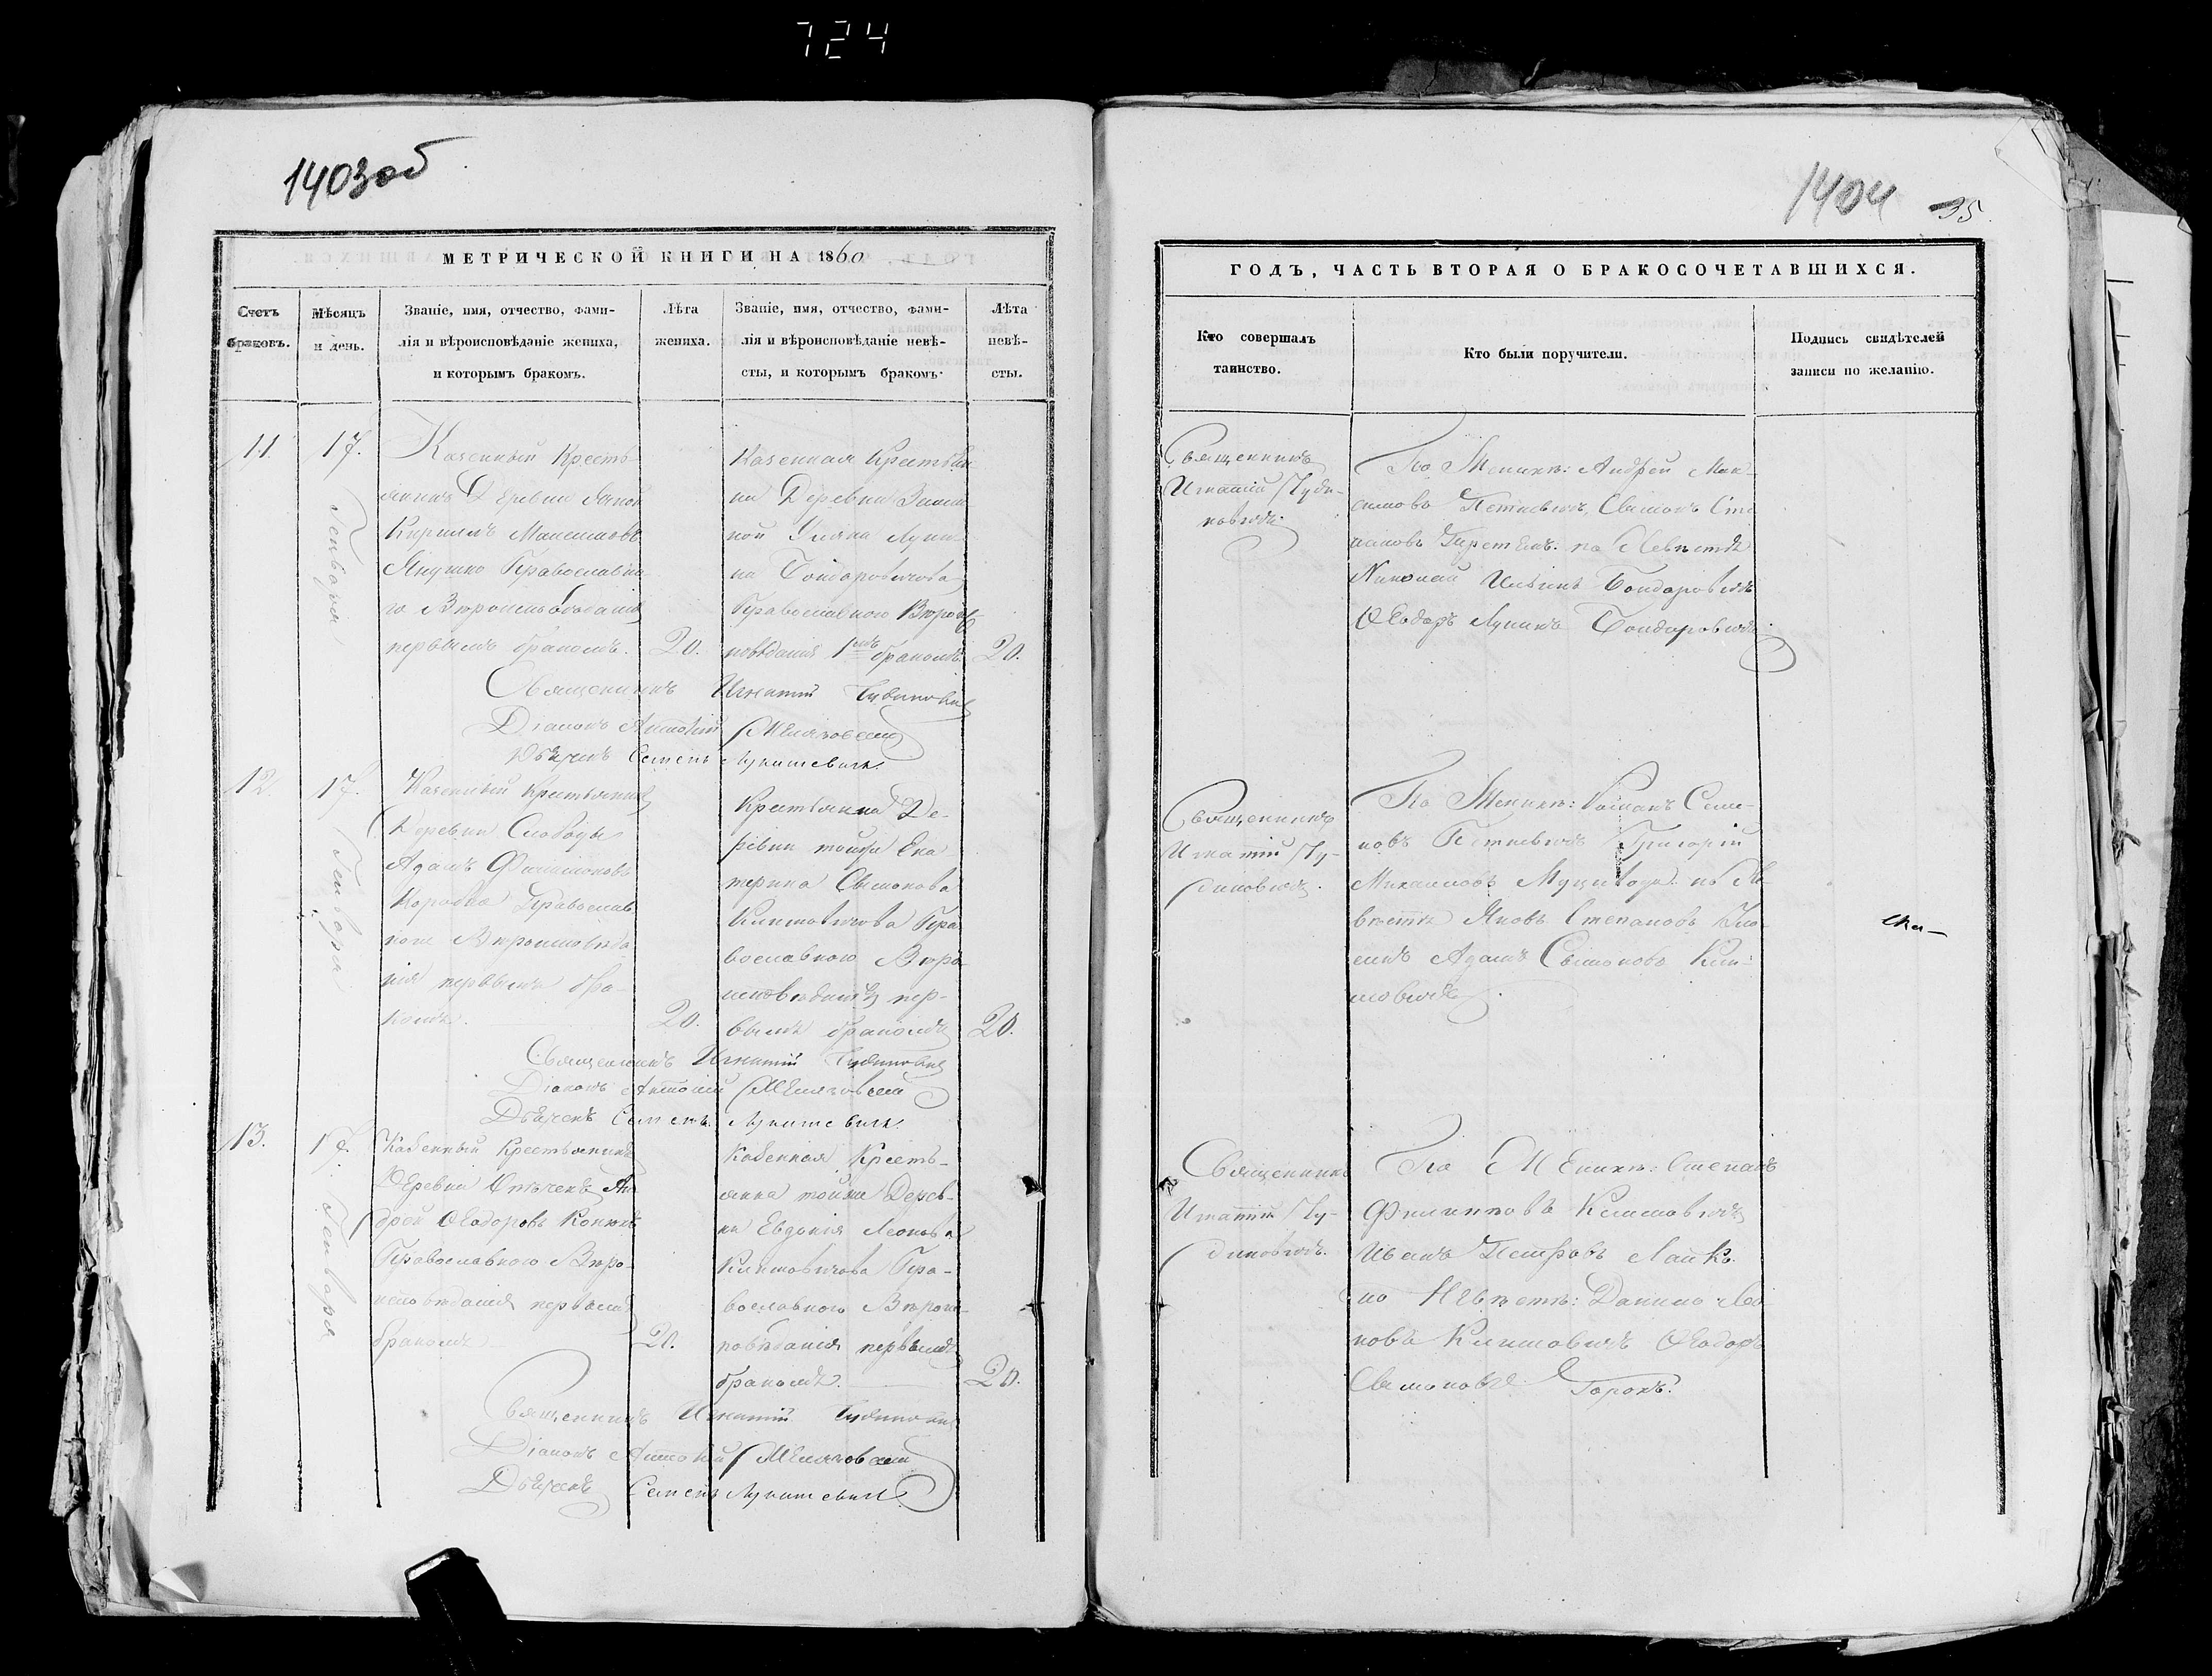 724
1403об
МЕТРИЧЕСКОЙ КНИГИ НА 1860
Счетъ браковъ.
Мѣсяцъ и день.
Званіе, имя, отчество, фами-
лія и вѣроисповѣданіе жениха,
и которымъ бракомъ.
Лѣта жениха.
Званіе, имя, отчество, фами-
лія и вѣроисповѣданіе невѣ-
сты, и которымъ бракомъ.
Лѣта невѣ-
сты.
11.
17.
Генваря
Казенный Кресть-
янинъ Деревни
Кирилъ Максимовъ
Янушко Православна
го Вѣроисповѣданія
первымъ бракомъ.
20.
Казенная Крестьян
ка Деревни
Уляна Луки-
на Бондоровичова
Православного Вѣроис
повѣданія 1мъ бракомъ
20.
Священникъ Игнатій
Діаконъ Антоній
Дьячекъ Семенъ Лукашевичъ
12.
17.
Генваря
Казенный Крестьянинъ
Деревни Слободы
Адамъ Филимоновъ
Коробка Православ
ного Вѣроисповѣда
нія первымъ бра-
комъ.
20.
Крестьянка Де-
ревни тойже Ека
терина Сымонова
Климовичова Пра
вославного Вѣро-
исповѣданія пер-
вымъ бракомъ
20.
Священникъ Игнатій
Діаконъ Антоній
Дьячекъ Семенъ Лукашевичъ
13.
17.
Генваря
Казенный Крестьянинъ
Деревни Ан
дрей Ѳеодоровъ Конюхъ
Православного Вѣро-
исповѣданія первымъ
бракомъ
21.
Казенная Кресть-
янка тойже Дерев-
ни Евдокія Леонова
Климовичова Пра-
вославного Вѣроис-
повѣданія первымъ
бракомъ.
20.
Священникъ Игнатій
Діаконъ Антоній
Дьячекъ Семенъ Лукашевичъ
1404
35
ГОДЪ, ЧАСТЬ ВТОРАЯ О БРАКОСОЧЕТАВШИХСЯ.
Кто совершалъ
таинство.
Кто были поручители.
Подпись свидѣтелей
записи по желанію.
Священникъ
Игнатій
По Женихѣ: Андрей Мак-
симовъ Петкевичъ, Сымонъ Сте
пановъ по Невѣстѣ
Николай Бондоровичъ
Ѳеодоръ Лукинъ Бондоровичъ
Священникъ
Игнатій
По Женихѣ: Романъ Семе-
новъ Петкевичъ Григорій
Михаиловъ по Не-
вѣстѣ Яковъ Степановъ
Адамъ Сымоновъ Кли-
мовичъ
Священникъ
Игнатій
По Женихѣ: Степанъ
Филиповъ Климовичъ
Иванъ Петровъ
по Невѣстѣ: Данило Лео-
новъ Климовичъ Ѳеодоръ
Сымоновъ Горохъ.